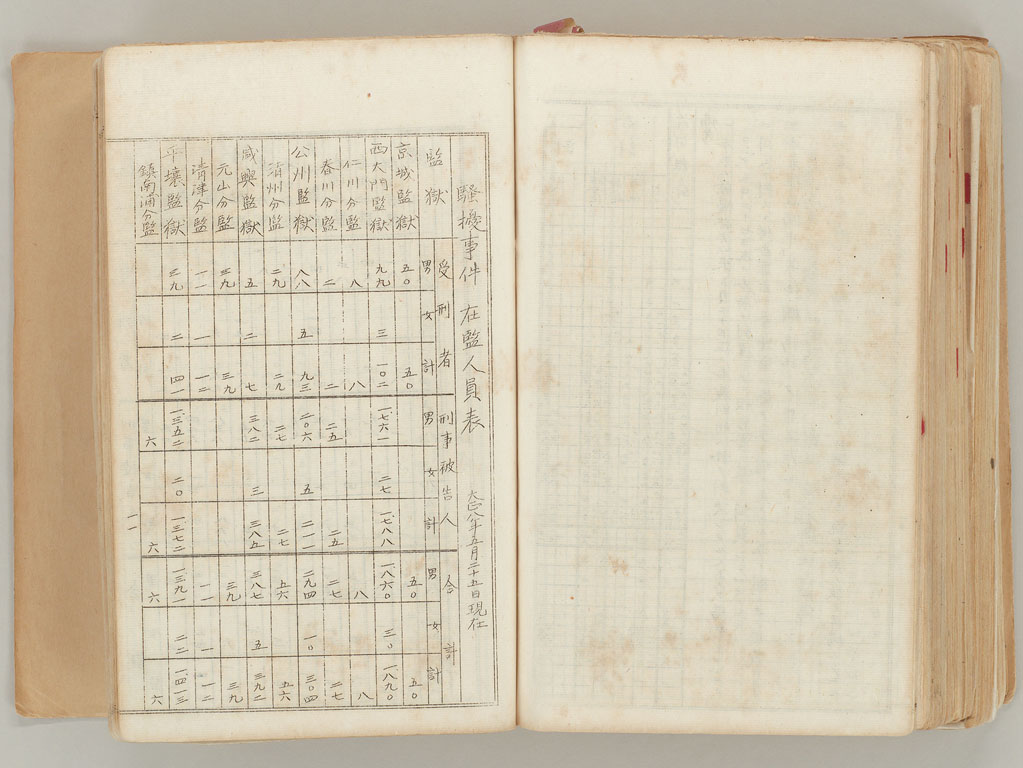 騷擾事件 在監人員表 大正八年五月二十五日現在
受刑者 刑事被告人 合計
監獄 男 女 計 男 女 計 男 女 計
京城監獄 五〇 五〇 五〇 五〇
西大門監獄 九九 三 一〇二 一、七六一 二七 一、七八八 一、八六〇 三〇 一、八九〇
仁川分監 八 八 八 八
春川分監 二 二 二五 二五 二七 二七
公州監獄 八八 五 九三 二〇六 五 二一一 二九四 一〇 三〇四
清州分監 二九 二九 二七 二七 五六 五六
咸興監獄 五 二 七 三八二 三 三八五 三八七 五 三九二
元山分監 三九 三九 三九 三九
清津分監 一一 一 一二 一一 一 一二
平壤監獄 三九 二 四一 一、三五二 二〇 一、三七二 一、三九一 二二 一、四一三
鎮南浦分監 六 六 六 六
一一